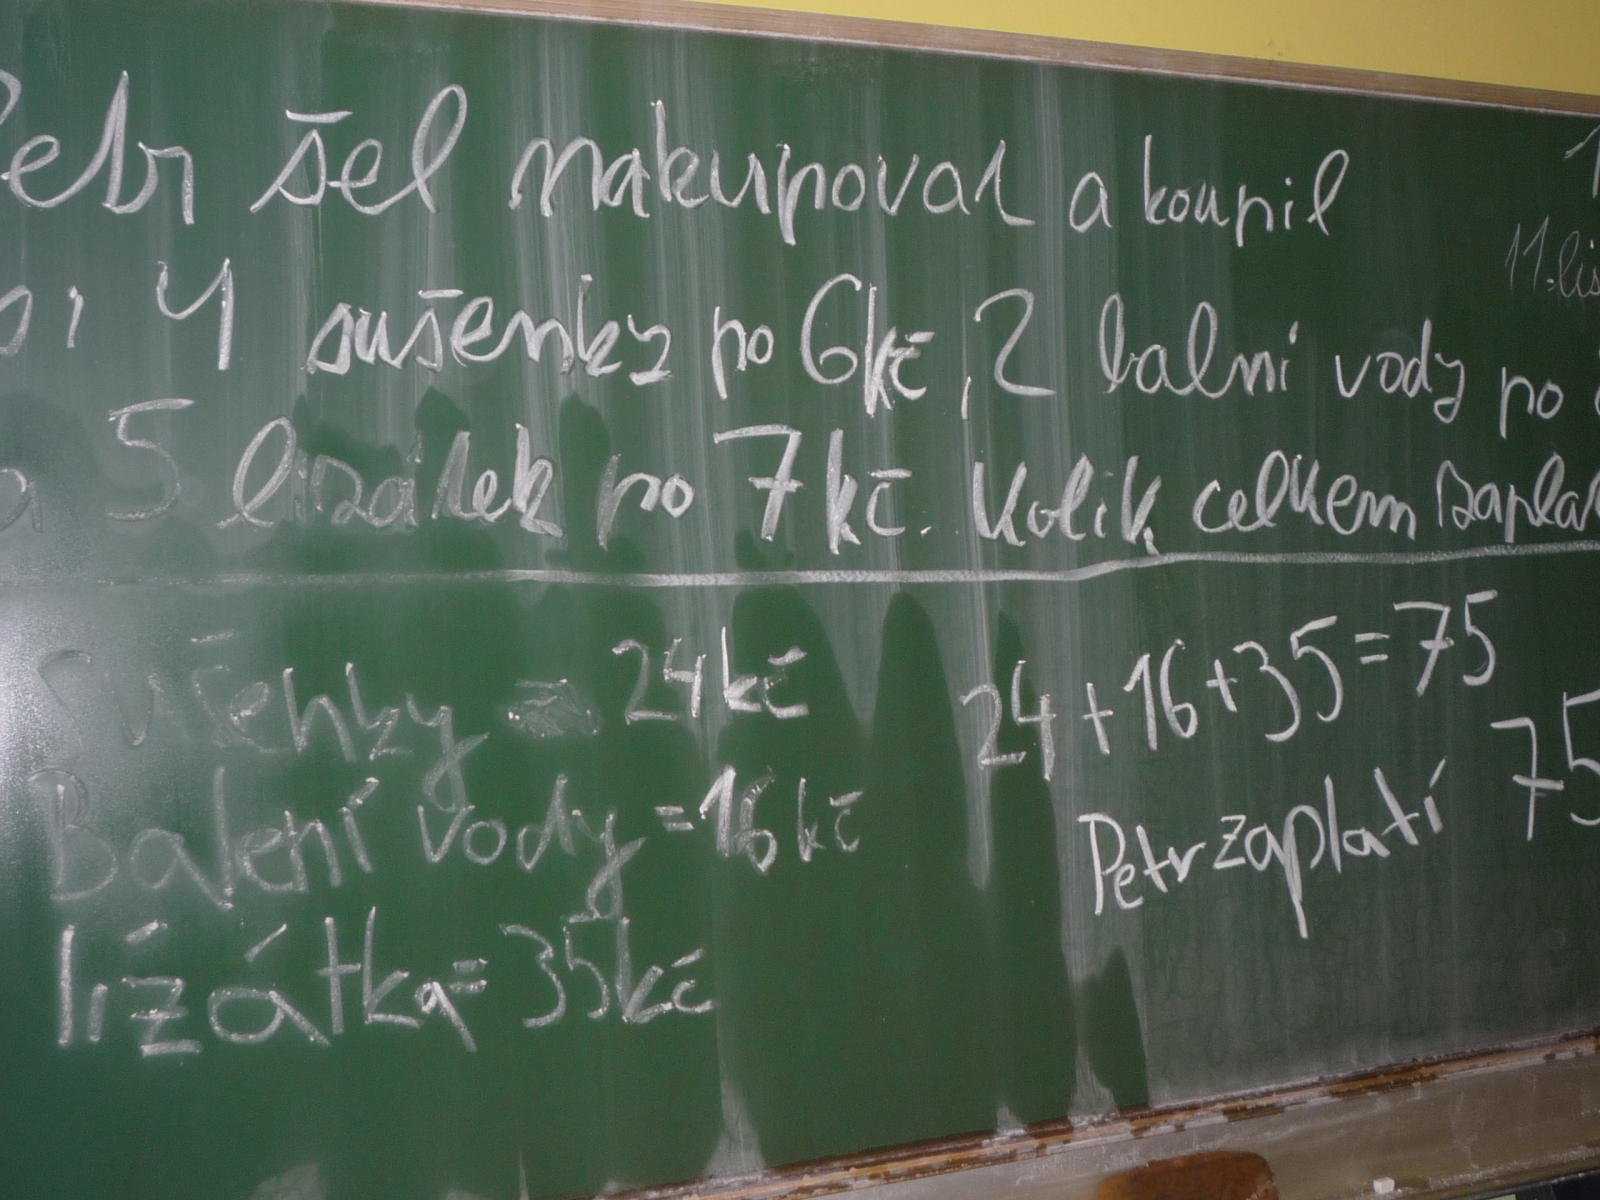 Petr šel nakupoval a koupil
si 4 sušenky po 6kč, 2 balni vody po
a 5 lizátek po 7kč. Kolik celkem zaplat
11.lis
Sušenky = 24kč
Balení vody = 16kč
lízátka = 35kč
24+16+35=75
Petr zaplatí 75